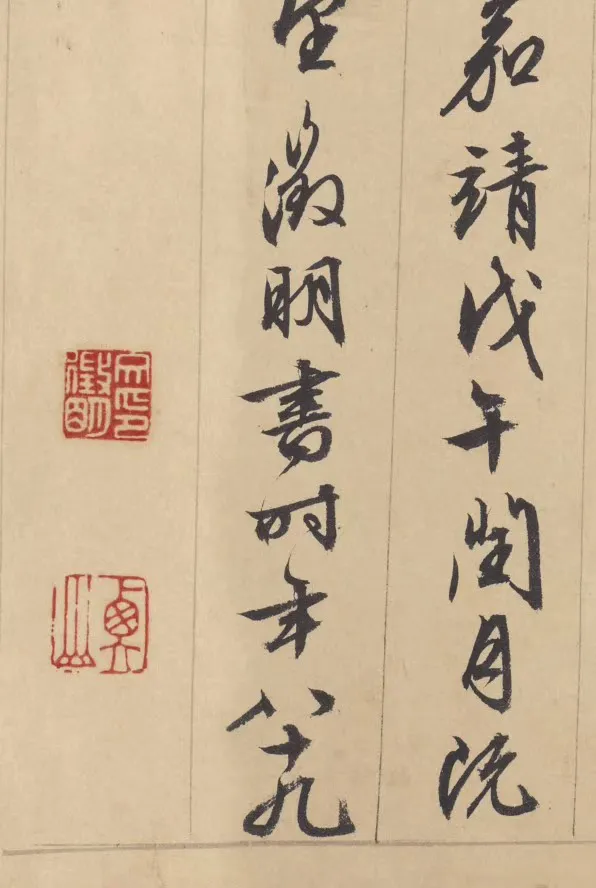 嘉靖戊午閏月既
望徵明書时年八十九
文徵明印
衡山